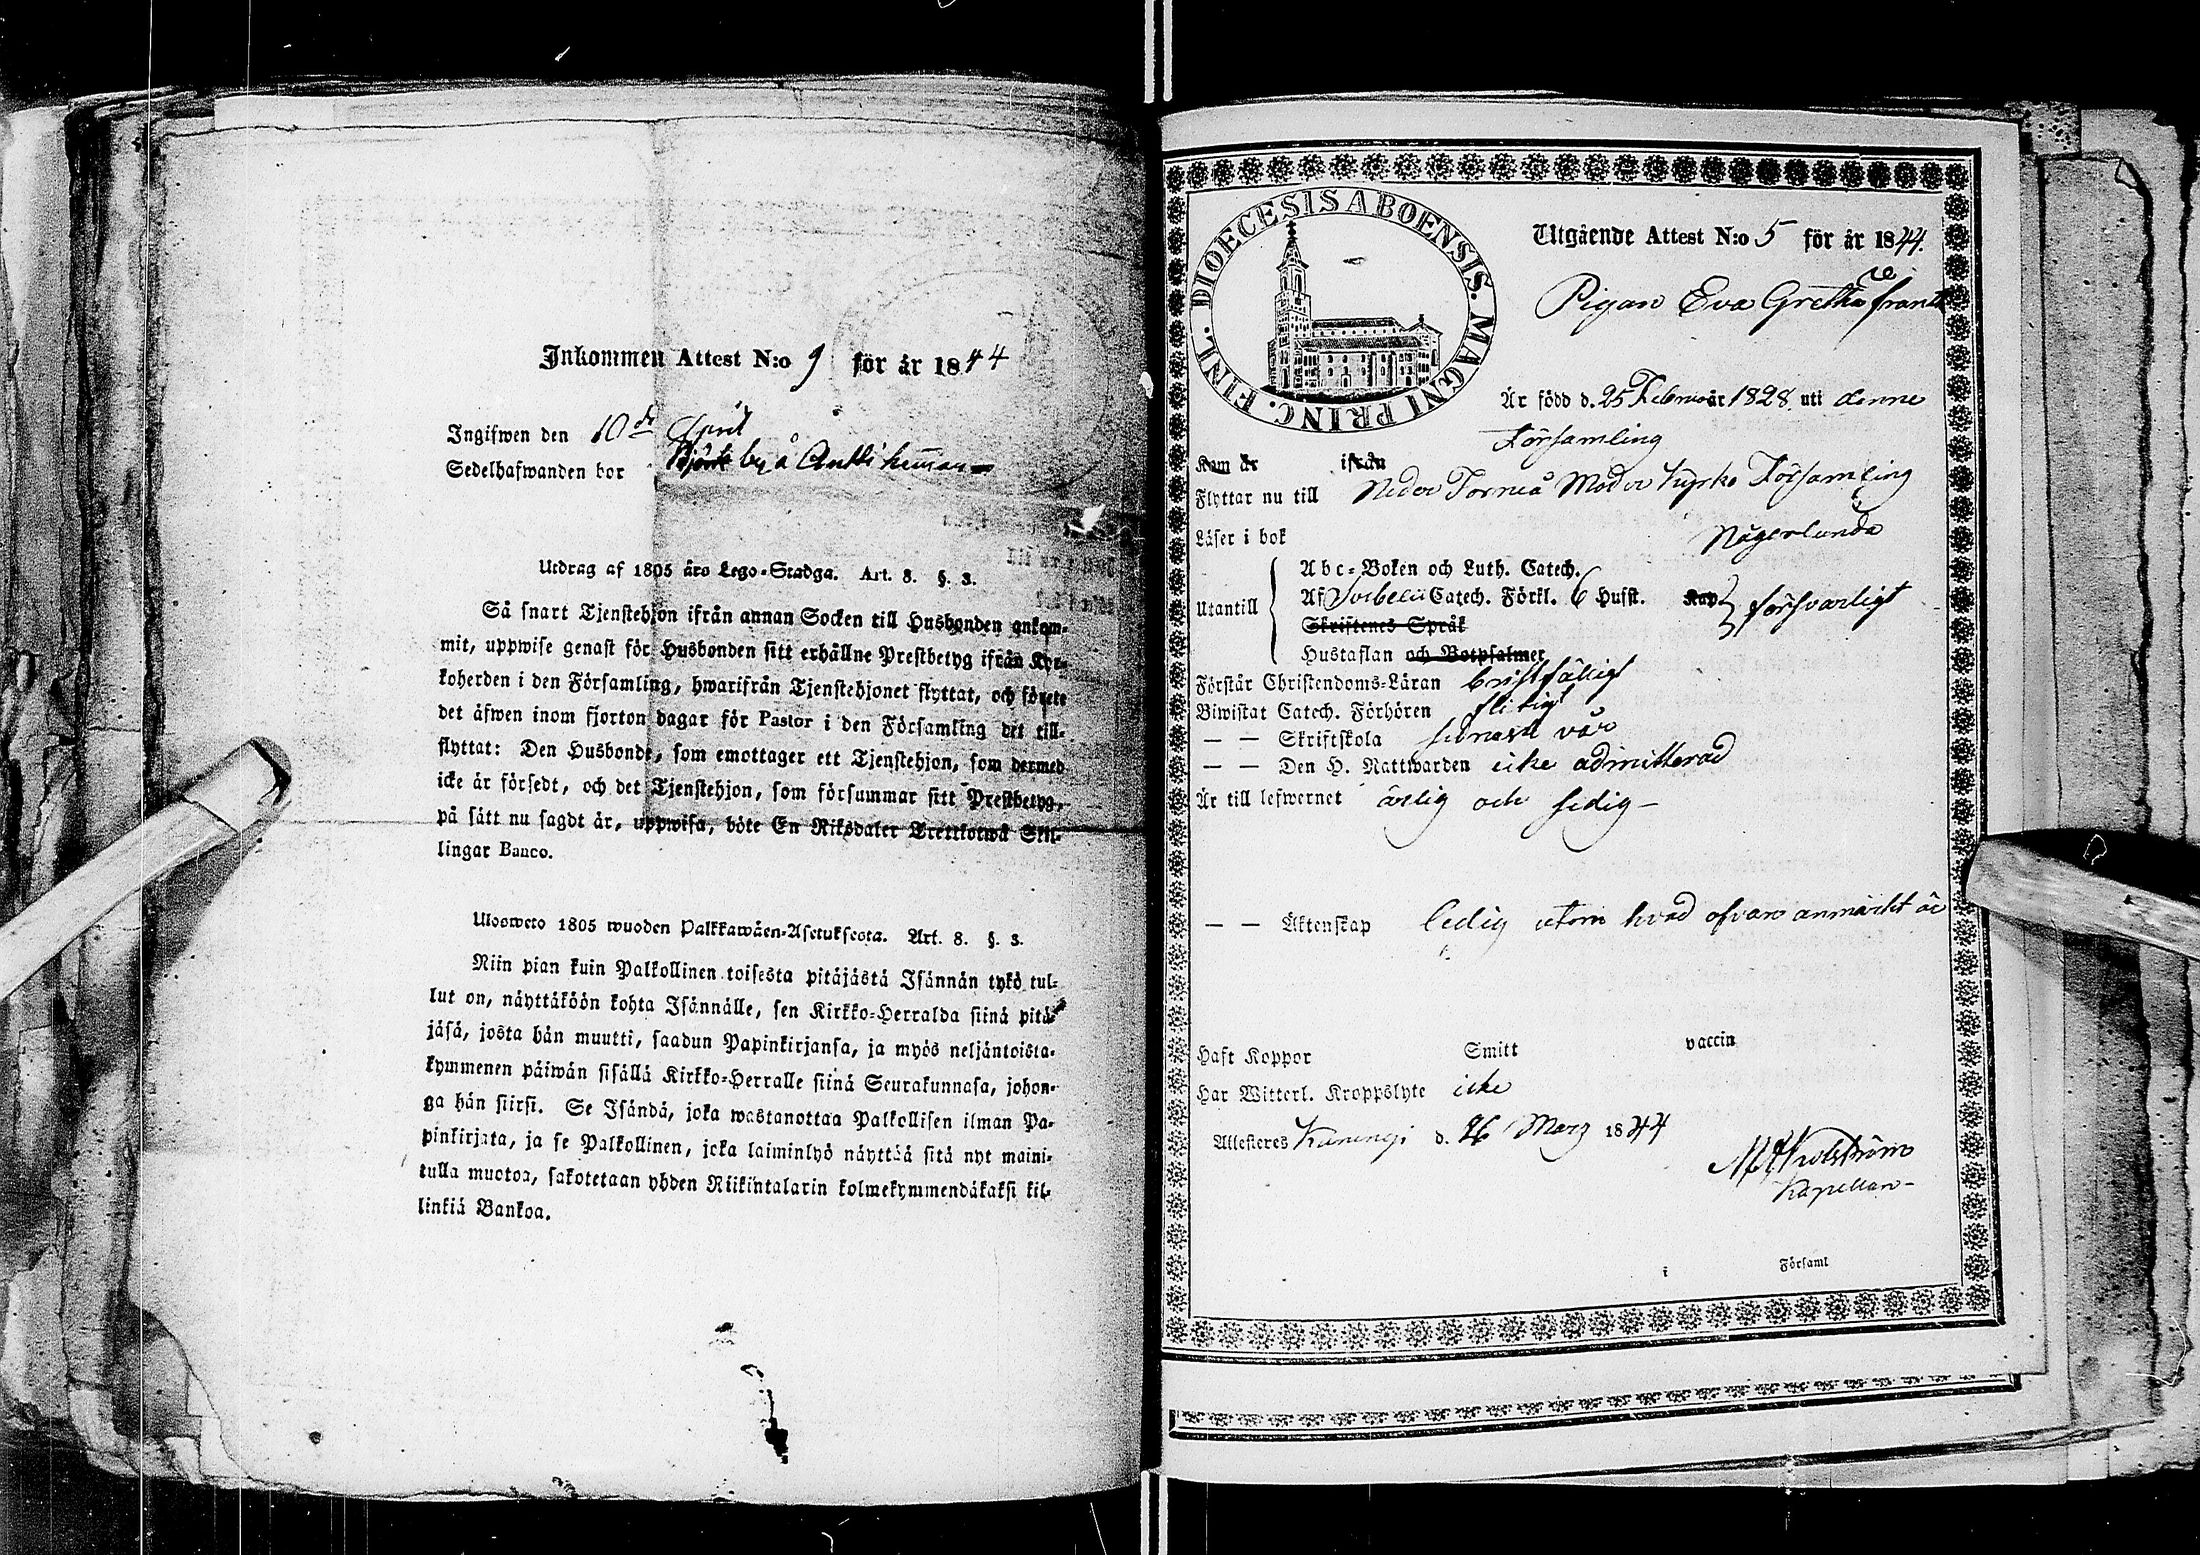 Inkommen Attest N:o 9 för år 1844
Ingifwen den 10de April
Sedelhafwanden bor by å Antti hemman
Utdrag af 1805 års Lego-Stadga. Art. 8. §. 3.
Så snart Tjenstehjon ifrån annan Socken till Husbonden ankom-
mit, uppwise genast för Husbonden sitt erhållne Prestbetyg ifrån Kyr-
koherden i den Församling, hwarifrån Tjenstehjonet flyttat, och förete
det äfwen inom fjorton dagar för Pastor i den Församling det till-
flyttat: Den Husbonde, som emottager ett Tjenstehjon, som dermed
icke är försedt, och det Tjenstehjon, som försummar sitt Prestbetyg,
på sätt nu sagdt är, uppwisa, böte En Riksdaler Trettiotwå Skil-
lingar Banco.
Ulosweto 1805 wuoden Palkkawäen-Asetuksesta. Art. 8. §. 3.
Niin pian kuin Palkollinen toisesta pitäjästä Isännän tykö tul-
lut on, näyttäköön kohta Isännälle, sen Kirkko-Herralda siinä pitä-
jäsä, josta hän muutti, saadun Papinkirjansa, ja myös neljäntoista-
kymmenen päiwän sisällä Kirkko-Herralle siinä Seurakunnasa, johon-
ga hän siirsi. Se Isändä, joka wastanottaa Palkollisen ilman Pa-
pinkirjata, ja se Palkollinen, joka laiminlyö näyttää sitä nyt maini-
tulla muotoa, sakotetaan yhden Riikintalarin kolmekymmendäkaksi kil-
linkiä Bankoa.
DIOECESIS ABOENSIS. MAGNI PRINC. FINL.
Utgående Attest N:o 5 för år 1844.
Pigan Eva Gretha
Är född d. 25 Februar år 1828 uti denne
Församling
Kom år ifrån
Flyttar nu till Neder Torneå Moder Kyrko Församling
Läser i bok Någorlunda
Abc-Boken och Luth. Catech.
Utantill Af Svebelii Catech. Förkl. 6 Husst. Kap försvarligt
Skriftenes Språk
Hustaflan och Botpsalmer
Förstår Christendoms-Läran bristfälligt
Biwistat Catech. Förhören flitigt
— — Skriftskola senast vår
— — Den H. Nattwarden icke admitterad
Är till lefwernet ärlig och sedig —
— — Äktenskap ledig utom hvad ofvan anmärkt är
Haft Koppor Smitt vaccin
Har Witterl. Kroppslyte icke
Attesteres Karungi d. 26 Marz 1844
Kapellan
i Församl